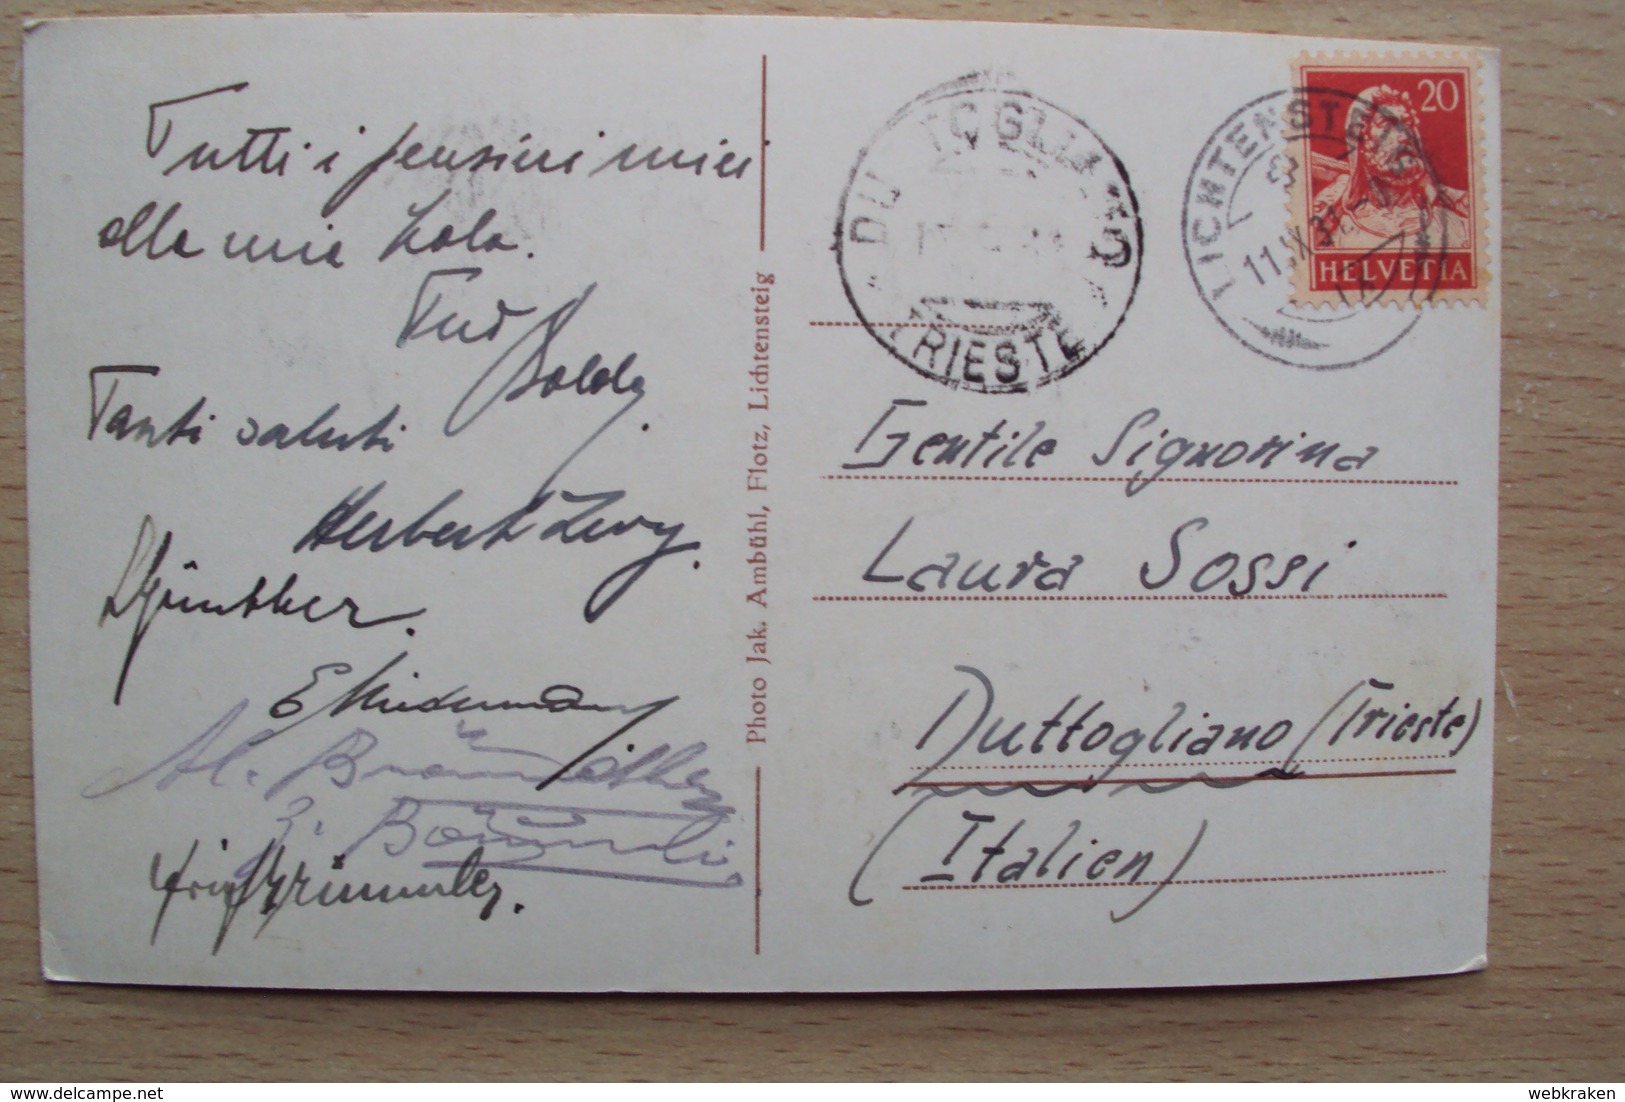 Tutti i pensieri miei
alla mia Lola.
Tuo
Poldy.
Tanti saluti
Herbert Levy.
Günther.
Photo Jak. Ambühl, Flotz, Lichtensteig
DUTTOGLIANO
TRIESTE
LICHTENSTEIG
11.IX.31
20
HELVETIA
Gentile Signorina
Laura Sossi
Duttogliano (Trieste)
(Italien)
webkraken